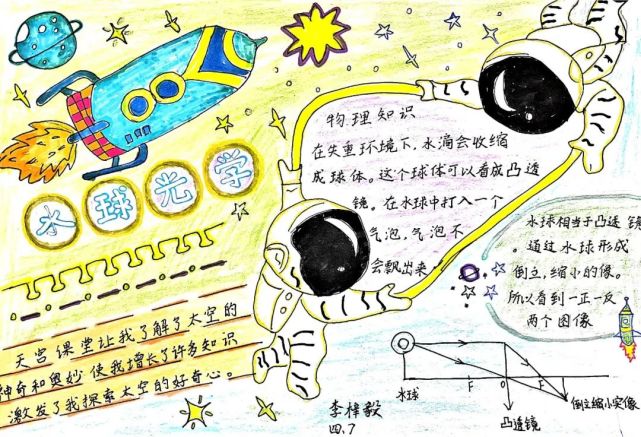 水球光学
物理知识
在失重环境下,水滴会收缩
成球体。这个球体可以看成凸透
镜。在水球中打入一个
气泡,气泡不
会飘出来
水球相当于凸透镜
。通过水球形成
倒立,缩小的像。
所以看到一正一反
两个图像
天宫课堂让我了解了太空的
神奇和奥妙使我增长了许多知识
激发了我探索太空的好奇心。
水球
F
O
F
凸透镜
倒立缩小实像
李梓毅
四.7